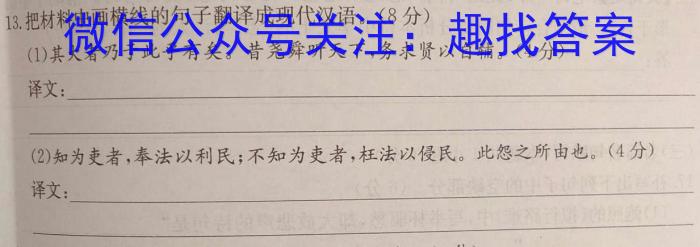 13.把材料中画横线的句子翻译成现代汉语。(8分)
微信公众号关注：趣找答案
(1)其大者乃于此乎有矣。昔尧舜听天下,务求贤以自辅。(4分)
译文:
(2)知为吏者,奉法以利民;不知为吏者,枉法以侵民。此怨之所由也。(4分)
译文: